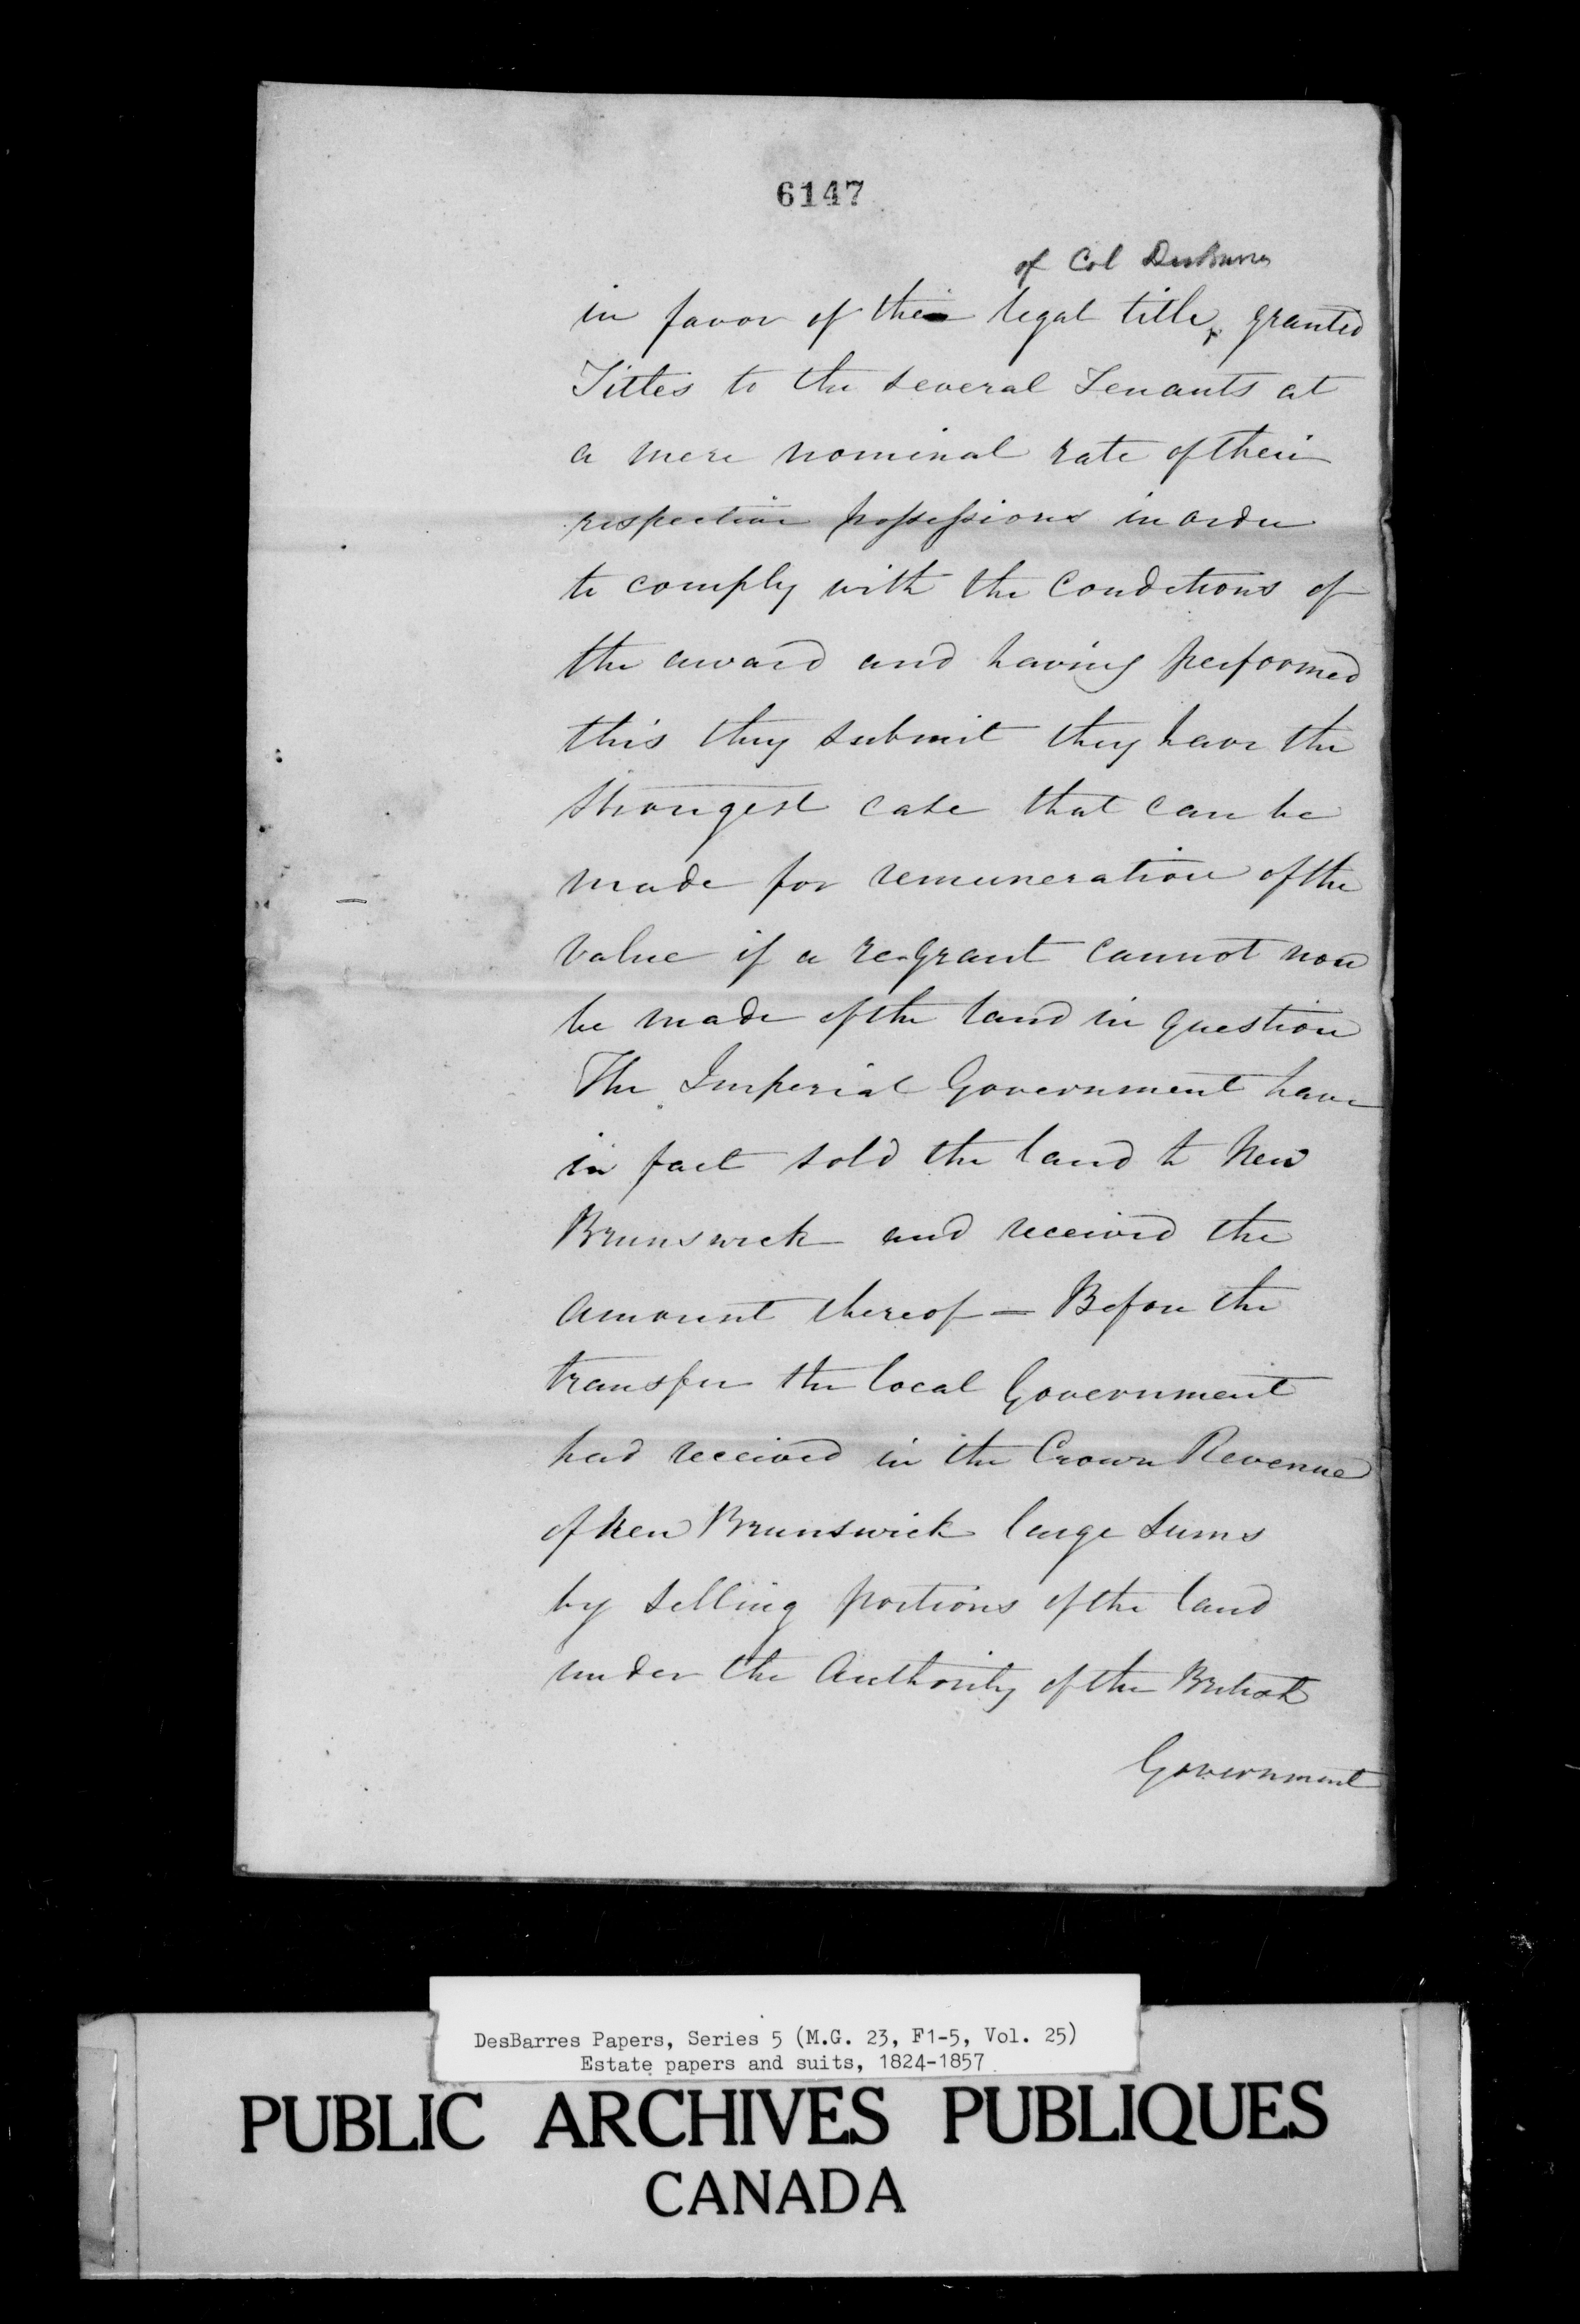 6147
of Col DesBarres
in favor of the legal title, granted
Titles to the several Tenants at
a mere nominal rate of their
respective possessions in order
to comply with the Conditions of
the award and having performed
this they submit they have the
strongest case that can be
made for remuneration of the
value if a re-grant cannot now
be made of the land in question
The Imperial Government have
in fact sold the land to New
Brunswick and received the
amount thereof — Before the
transfer the local Government
had received in the Crown Revenue
of New Brunswick large sums
by selling portions of the land
under the Authority of the British
Government
DesBarres Papers, Series 5 (M.G. 23, F1-5, Vol. 25)
Estate papers and suits, 1824-1857
PUBLIC ARCHIVES PUBLIQUES
CANADA